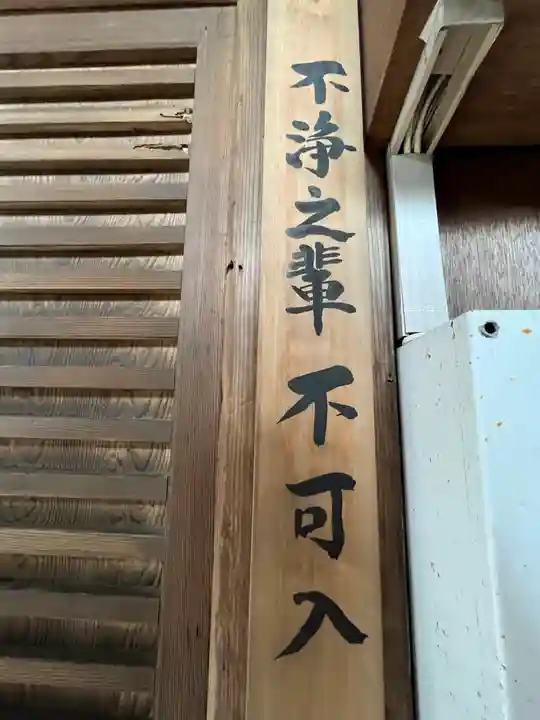 不浄之輩 不可入